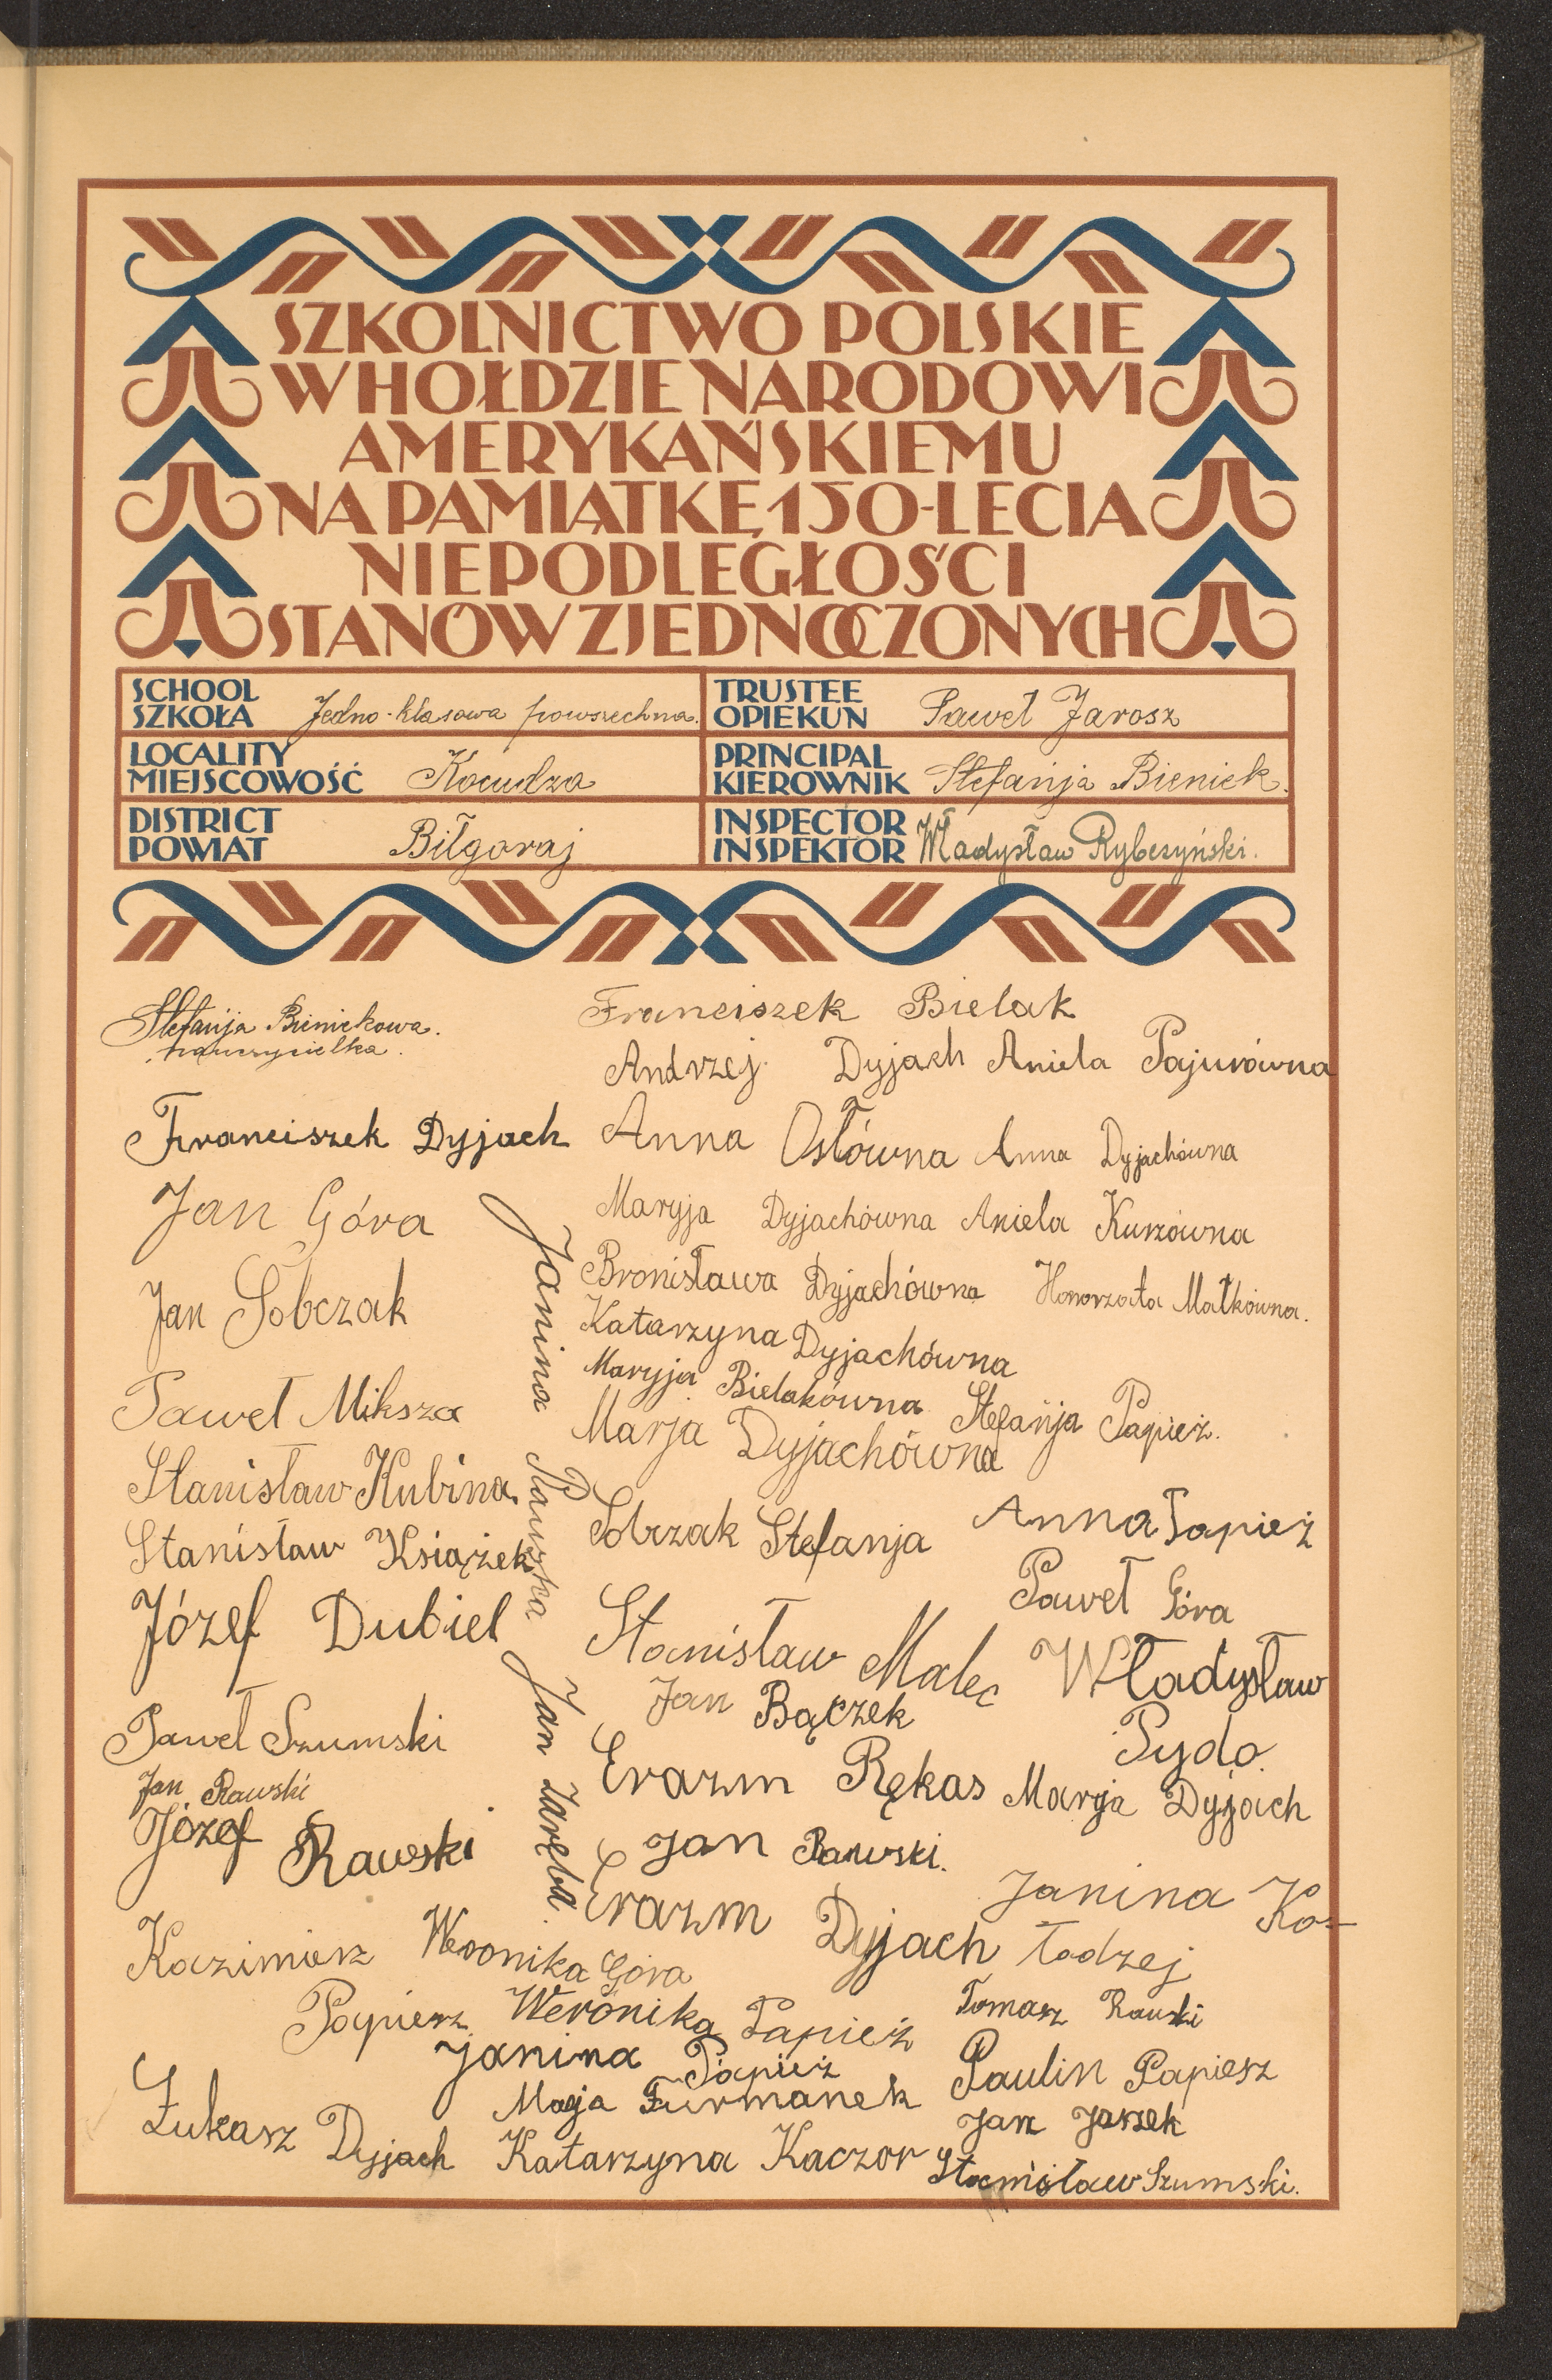 SZKOLNICTWO POLSKIE
W HOŁDZIE NARODOWI
AMERYKAŃSKIEMU
NA PAMIĄTKĘ 150-LECIA
NIEPODLEGŁOŚCI
STANÓW ZJEDNOCZONYCH
SCHOOL
SZKOŁA Jedno-klasowa powszechna.
TRUSTEE
OPIEKUN Paweł Jarosz
LOCALITY
MIEJSCOWOŚĆ Kocudza
PRINCIPAL
KIEROWNIK Stefanja Bieniek.
DISTRICT
POWIAT Biłgoraj
INSPECTOR
INSPEKTOR Władysław Rybczyński.
Stefanja Bieniekowa.
nauczycielka.
Franciszek Dyjach
Jan Góra
Jan Sobczak
Paweł Miksza
Stanisław Kubina
Stanisław Książek
Józef Dubiel
Paweł Szumski
Jan Rawski
Józef Rawski
Kazimierz
Papierz
Łukasz Dyjach
Janina
Jan Zaręba.
Franciszek Bielak
Andrzej Dyjach Aniela Pajurówna
Anna Osłówna Anna Dyjachówna
Maryja Dyjachówna Aniela Kurzówna
Bronisława Dyjachówna Honorzata Małkówna.
Katarzyna Dyjachówna
Maryja Bielakówna Stefanja Papież.
Marja Dyjachówna
Sobczak Stefanja Anna Papież
Paweł Góra
Stanisław Malec Władysław
Pydo
Jan Bączek
Erazm Rękas Marja Dyjach
Jan Rawski.
Erazm Dyjach Janina Ko-
łodzej
Weronika Góra
Weronika Papież Tomasz Rawski
Janina Papież
Paulin Papiesz
Furmanek
Jan
Katarzyna Kaczor
Stanisław Szumski.